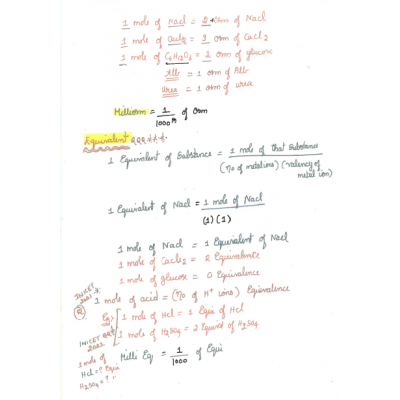 1 mole of Nacl = 2 Osm of Nacl
1 mole of Cacl2 = 3 Osm of Cacl2
1 mole of C6H12O6 = 1 Osm of glucose
Alb = 1 Osm of Alb
Urea = 1 Osm of urea
Milliosm = 1/1000th of Osm
Equivalent
1 Equivalent of Substance = 1 mole of that Substance / (no of metalions) (valency of metal ion)
1 Equivalent of Nacl = 1 mole of Nacl / (1) (1)
1 mole of Nacl = 1 Equivalent of Nacl
1 mole of Cacl2 = 2 Equivalents
1 mole of glucose = 0 Equivalence
INICET 2021 *
1 mole of acid = (no of H+ ions) Equivalence
Eg 1 mole of Hcl = 1 Equi of Hcl
1 mole of H2SO4 = 2 Equivl of H2SO4
INICET 2022
1 mole of
Hcl = ? Equi
H2SO4 = ? "
Milli Eq = 1/1000 of Equi